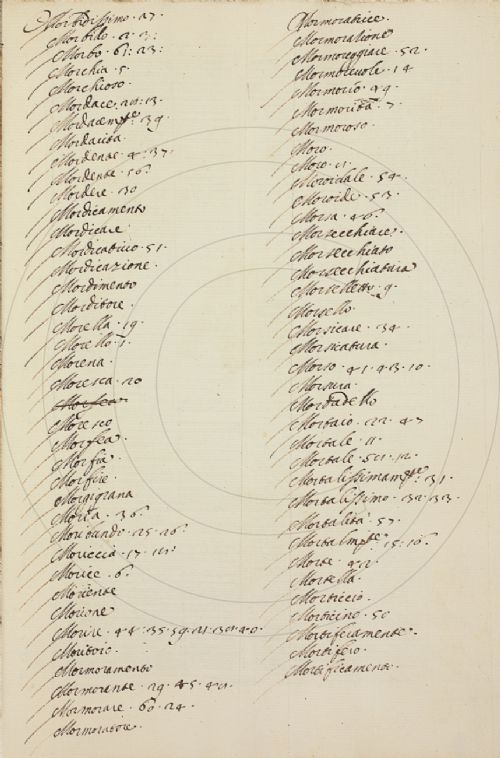 Morbidissimo. 27.
Morbillo. 2. 3:
Morbo. 61: 23:
Morchia. 5.
Morchioso.
Mordace. 20: 13.
Mordacemte. 39.
Mordacità.
Mordente. 4: 37:
Mordente. 56.
Mordere. 30
Mordicamento
Mordicare
Mordicativo. 51.
Mordicazione.
Mordimento
Morditore.
Morella. 19.
Morello. 1.
Morena.
Moresca. 20
Moresco
Morfea.
Morfia.
Morfire.
Morgigrana
Moria. 36.
Moribundi. 25. 26.
Moriccia. 17.
Morice. 6.
Moriente
Morione
Morire. 44: 35. 59. 21: 30: 40.
Moritoio.
Mormoramento
Mormorante. 29. 45. 40.
Mormorare. 60. 24.
Mormoratore.
Mormoratrice.
Mormoratione
Mormoreggiare. 52.
Mormorevole. 14
Mormorio. 49.
Mormorità. 7.
Mormoroso.
Moro.
Moro. 11.
Moroidale. 54.
Moroide. 53.
Morsa. 46.
Morsecchiare.
Morsecchiato
Morsecchiatura
Morselletto. 9.
Morsello.
Morsicare. 34.
Morsicatura.
Morso. 41. 43. 10.
Morsura.
Mortadello
Mortaio. 22. 47
Mortale. 11.
Mortale. 12.
Mortalissimamte. 31.
Mortalissimo. 32. 33.
Mortalità. 57.
Mortalmte. 15: 16.
Morte. 42.
Mortella.
Morticcio.
Morticino. 50
Mortificamente.
Mortificio.
Mortificamento.